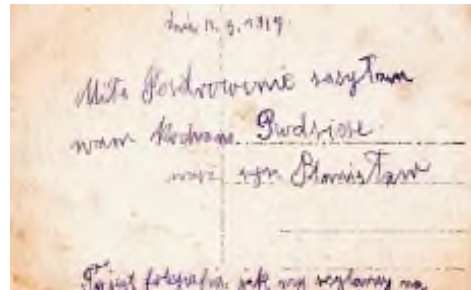 dnia 11. 9. 1919.
Miłe Pozdrowienie zasyłam
wam Kochane Rodzice
wasz syn Stanisław
To jest fotografia jak my na